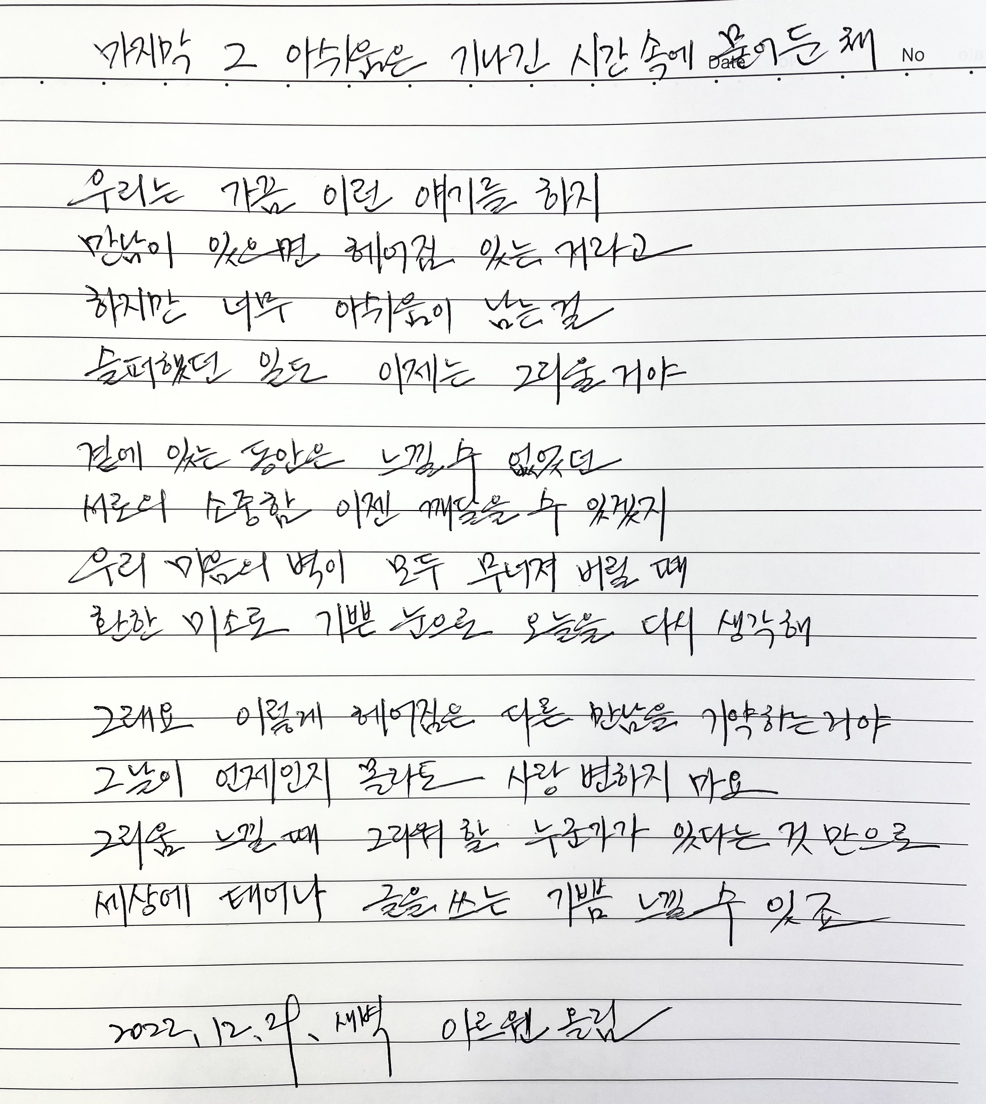 마지막 그 아쉬움은 기나긴 시간 속에 묻어둔 채
Date No
우리는 가끔 이런 얘기를 하지
만남이 있으면 헤어짐 있는 거라고
하지만 너무 아쉬움이 남는걸
슬퍼했던 일도 이제는 그리울거야
곁에 있는 동안은 느낄 수 없었던
서로의 소중함 이젠 깨달을 수 있겠지
우리 마음의 벽이 모두 무너져 버릴 때
환한 미소로 기쁜 눈으로 오늘을 다시 생각해
그래요 이렇게 헤어짐은 다른 만남을 기약하는거야
그날이 언제인지 몰라도 사랑 변하지 마요
그리움 느낄 때 그리워 할 누군가가 있다는 것 만으로
세상에 태어나 글을 쓰는 기쁨 느낄 수 있죠
2022. 12. 29. 새벽 아르웬 올림